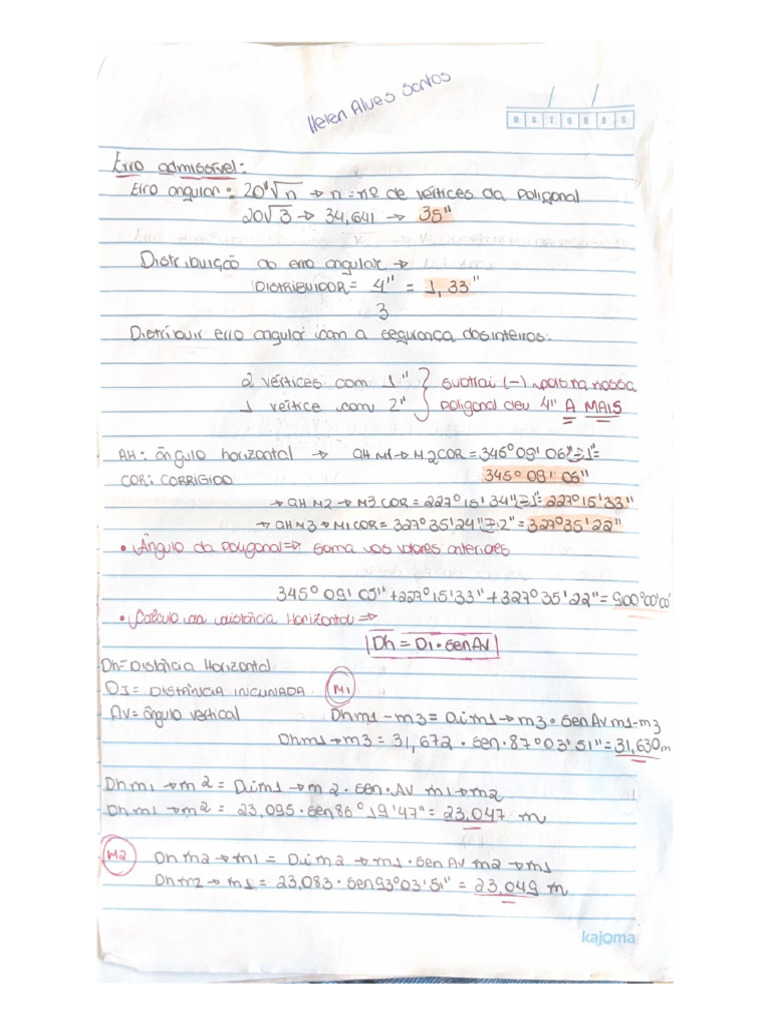 Helen Alves Santos
D S T Q Q S S
Erro admissível:
Erro angular: 20"√n → n = nº de vértices da poligonal
20√3 → 34,641 → 35"
Distribuição do erro angular →
DISTRIBUIDOR = 4" = 1,33"
3
Distribuir erro angular com a segurança dos inteiros:
2 vértices com 1" } subtrai (-) pois na nossa
1 vértice com 2" } poligonal deu 4" A MAIS
AH: ângulo horizontal → aH M1 → M2 COR = 345° 09' 06" - 1" =
COR: CORRIGIDO 345° 09' 05"
→ aH M2 → M3 COR = 227° 15' 34" - 1" = 227° 15' 33"
→ aH M3 → M1 COR = 327° 35' 24" - 2" = 327° 35' 22"
• Ângulo da Poligonal => soma os valores anteriores
345° 09' 05" + 227° 15' 33" + 327° 35' 22" = 900° 00' 00"
• Cálculo da distância Horizontal =>
Dh = Di · sen AV
Dh = Distância Horizontal
DI = DISTÂNCIA INCLINADA M1
AV = ângulo vertical Dh m1 - m3 = D.i m1 → m3 · sen AV m1 - m3
Dh m1 → m3 = 31,672 · sen · 87° 03' 51" = 31,630 m
Dh m1 → m2 = D.i m1 → m2 · sen · AV m1 → m2
Dh m1 → m2 = 23,095 · sen 86° 19' 47" = 23,047 m
M2 Dh m2 → m1 = D.i m2 → m1 · sen AV m2 → m1
Dh m2 → m1 = 23,083 · sen 93° 03' 51" = 23,049 m
kajoma